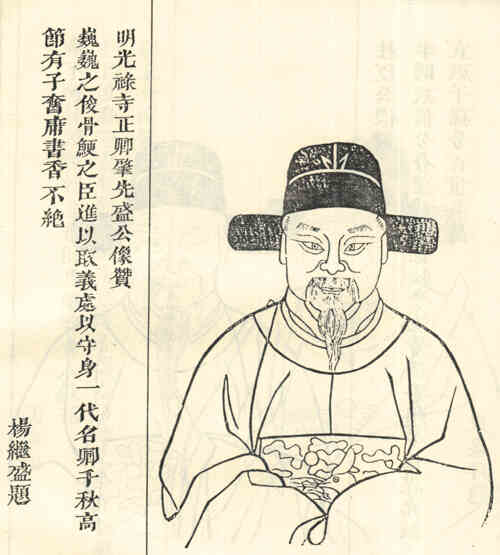 明光祿寺正卿肇先盛公像贊
巍巍之俊骨鯁之臣進以取義處以守身一代名卿千秋高
節有子奮庸書香不絕
楊繼盛題